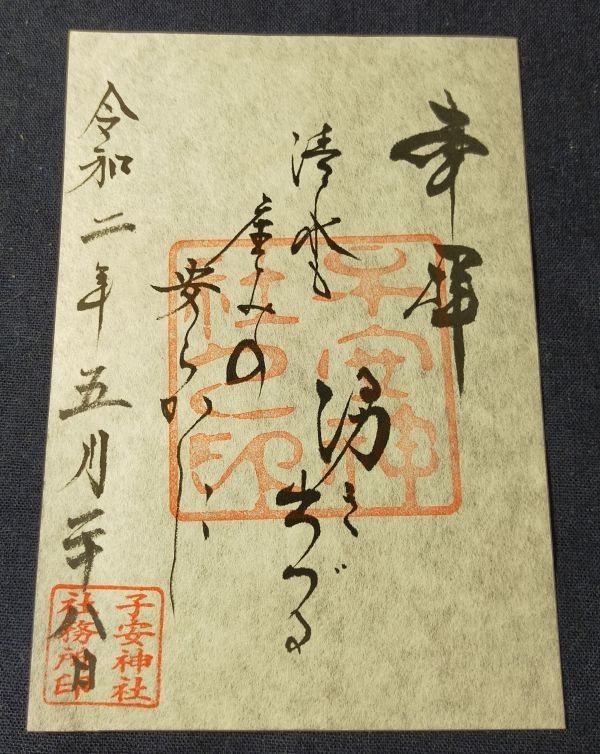 奉拝
清水も
湧き出づる
産みの
安らかし
令和二年五月二十八日
子安神
社之印
子安神社
社務所印